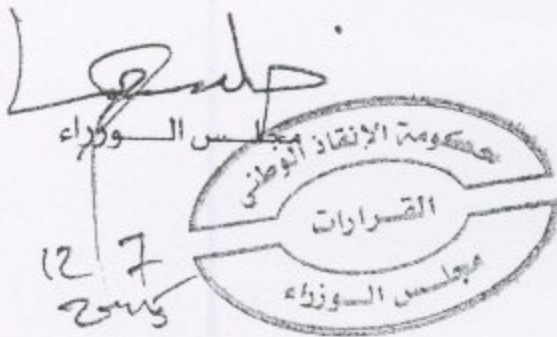 مجلس الــوزراء
حكومة الإنقاذ الوطني
القــرارات
مجلس الــوزراء
12 7